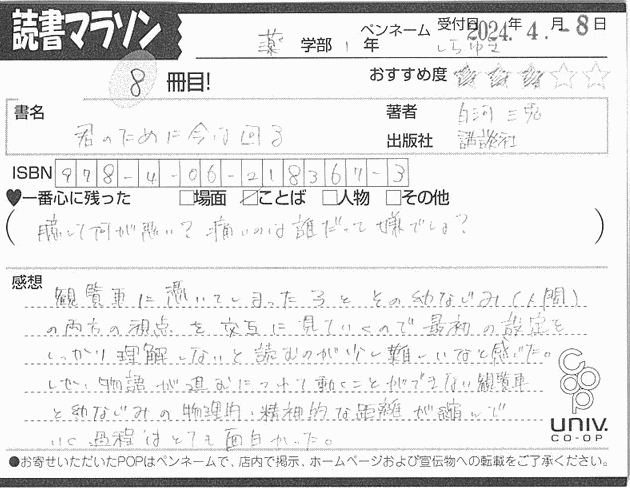 読書マラソン
薬 学部 1 年 ペンネーム しらゆき 受付日 2024年 4.月-8日
8 冊目! おすすめ度 ★★★☆☆
書名 君のために今は回る 著者 白河三兎
出版社 講談社
ISBN 978-4-06-218367-3
♥一番心に残った □場面 ☑ことば □人物 □その他
(臆して何が悪い? 痛いのは誰だって嫌でしょ?)
感想
観覧車に憑いてしまった ことその幼なじみ(人間)
の両方の視点を交互に見ていくので最初の設定を
しっかり理解しないと読むのが少し難しいなと感じた。
しかし物語が進むにつれて動くことができない観覧車
と幼なじみの物理的、精神的な距離が縮んで
いく過程はとても面白かった。
coop
UNIV.
CO-OP
●お寄せいただいたPOPはペンネームで、店内で掲示、ホームページおよび宣伝物への転載をご了承ください。